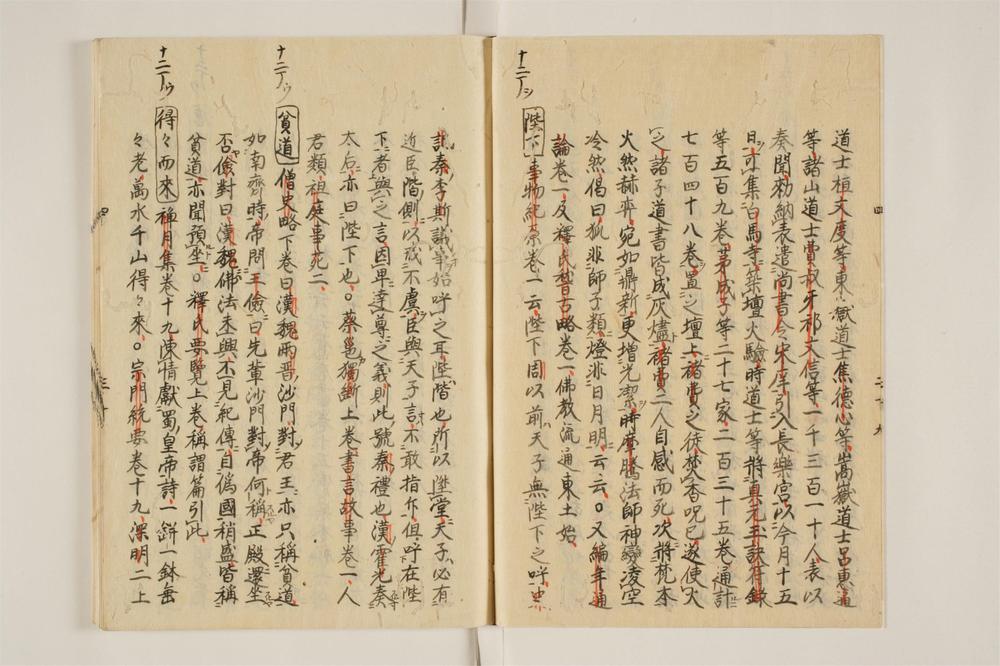 道士桓文度等東嶽道士焦德心等嵩嶽道士呂惠通
等諸山道士費叔才祁文信等一千三百一十人表以
奏聞勅納表遣尚書令宋庠引入長樂宮以今月十五
日可集白馬寺築壇火驗時道士等將真元玉訣符錄
等五百九卷茅成子等二十七家二百三十五卷通計
七百四十八卷置之壇上褚費之徒焚香呪已遂使火
之諸子道書皆成灰燼褚費二人自感而死次將梵本
火然赫弈宛如鼎新更增光潔時摩騰法師神變凌空
冷然偈曰狐非師子類燈非日月明云云○又編年通
論卷一及釋氏稽古略卷一佛教流通東土始
十二丁ノシ
陛下 事物紀原卷一云陛下周以前天子無陛下之呼史
記秦李斯議事始呼之耳陛階也所以陞堂天子必有
近臣階側以戒不虞臣與天子言不敢指斥但呼在陛
下者與之言因卑達尊之義則此號秦禮也漢霍光奏
太后亦曰陛下也○蔡邕獨斷上卷書言故事卷一人
君類祖庭事苑二
十二丁ノウ
貧道 僧史略下卷曰漢魏兩晉沙門對君王亦只稱貧道
如南齊時帝問王儉曰先輩沙門對帝何稱正殿還坐
否儉對曰漢魏佛法未興不見紀傳自僞國稍盛皆稱
貧道亦聞預坐○釋氏要覽上卷稱謂篇引此
十二丁ノウ
得々而來 禪月集卷十九陳情獻蜀皇帝詩一缾一鉢垂
々老萬水千山得々來○宗門統要卷十九深明二上